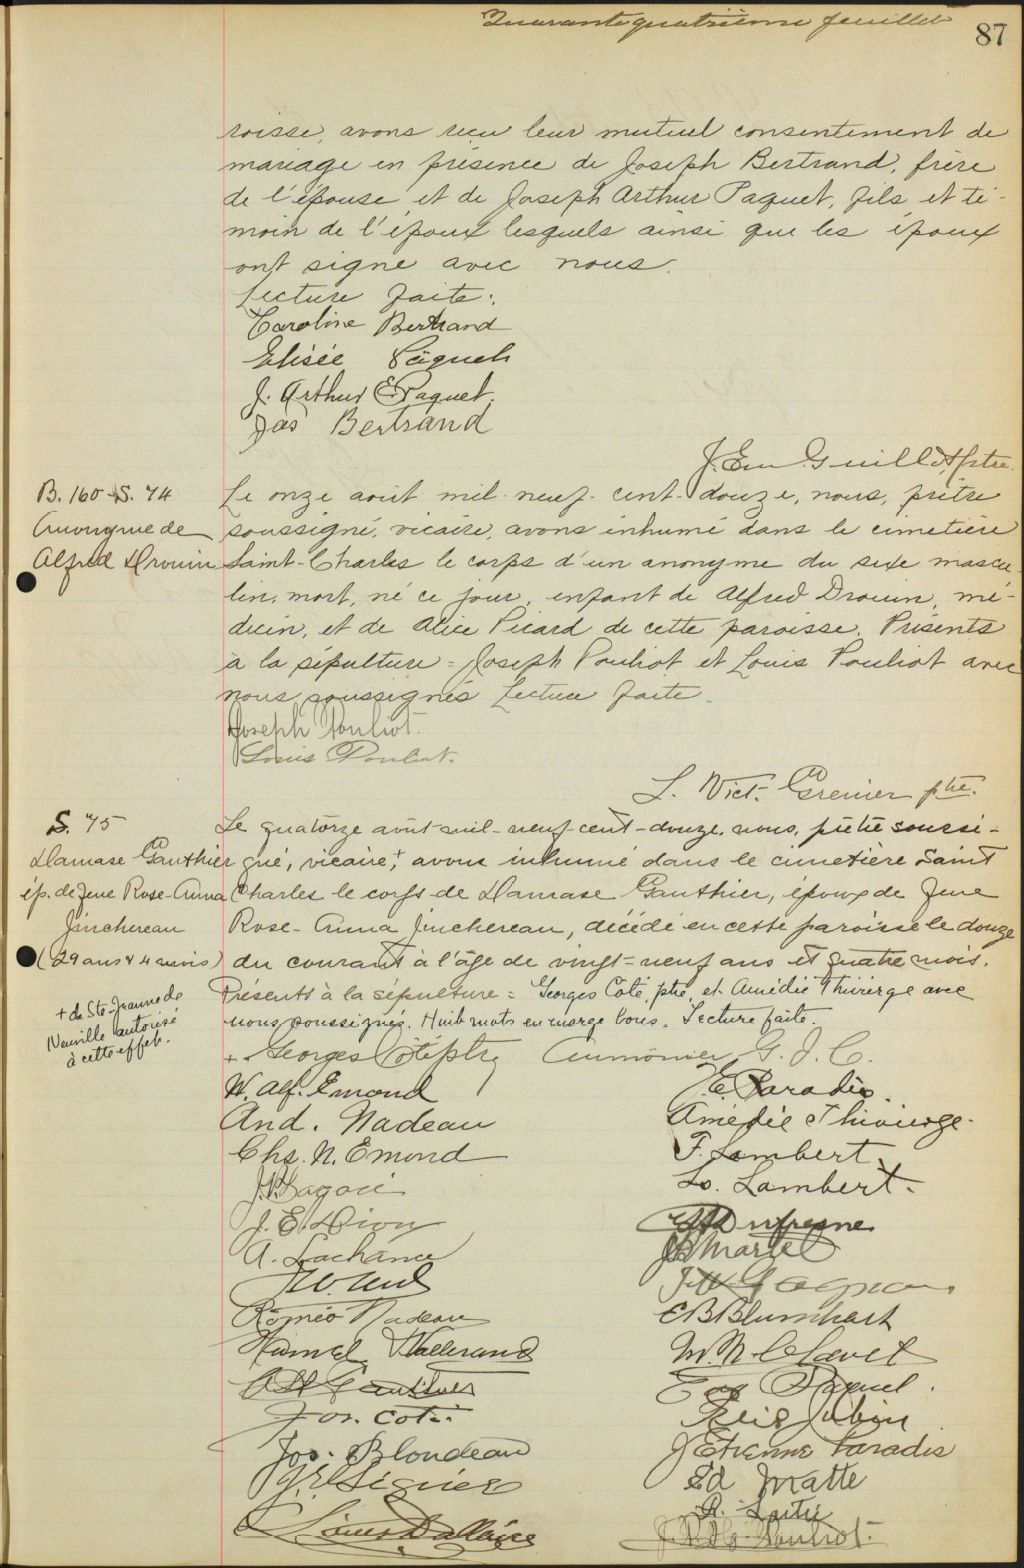 Quarante quatrième feuillet
87
roisse, avons reçu leur mutuel consentement de
mariage en présence de Joseph Bertrand, frère
de l'épouse et de Joseph Arthur Paquet, fils et té-
moin de l'époux lesquels ainsi que les époux
ont signé avec nous.
Lecture faite.
Caroline Bertrand
Elisée Pâquet
J. Arthur E Paquet.
Jos Bertrand
J. Em. Guillot ptre.
B. 160 - S. 74
Anonyme de
Alfred Drouin
Le onze août mil-neuf-cent-douze, nous, prêtre
soussigné, vicaire, avons inhumé dans le cimetière
Saint-Charles le corps d'un anonyme du sexe mascu-
lin, mort, né ce jour, enfant de Alfred Drouin, mé-
decin, et de Alice Picard de cette paroisse. Présents
à la sépulture = Joseph Pouliot et Louis Pouliot avec
nous soussignés Lecture faite.
Joseph Pouliot.
Louis Pouliot.
L. Vict. Grenier ptre.
S. 75
Damase Gauthier
ép. de feue Rose-Anna
Jinchereau
(29 ans & 4 mois)
Le quatorze août-mil-neuf-cent-douze, nous, prêtre soussi-
gné, vicaire,+ avons inhumé dans le cimetière Saint
Charles le corps de Damase Gauthier, époux de feue
Rose-Anna Jinchereau, décédé en cette paroisse le douze
du courant à l'âge de vingt=neuf ans et quatre mois.
Présents à la sépulture = Georges Côté, ptre, et Amédée Thivierge avec
nous soussignés. Huit mots en marge bons. Lecture faite.
+ de Ste-Jeanne de
Neuville autorisé
à cette effet.
+ Georges Côté ptre, Aumônier G. J. C.
W. Alf. Emond
E. Paradis.
And. Nadeau
Amédée Thivierge.
Chs. N. Emond
F. Lambert.
Ls. Lambert.
J. E. Dion
Dufresne
A. Lachance
Martel
J. W. Gagnon
Roméo Nadeau
E B Blumhart
Vallerand
Gauthier
Eug Paquet.
Jos. Coté.
Jos. Blondeau
J Etienne Paradis
Ed Matte
Louis Dallaire
Pouliot.